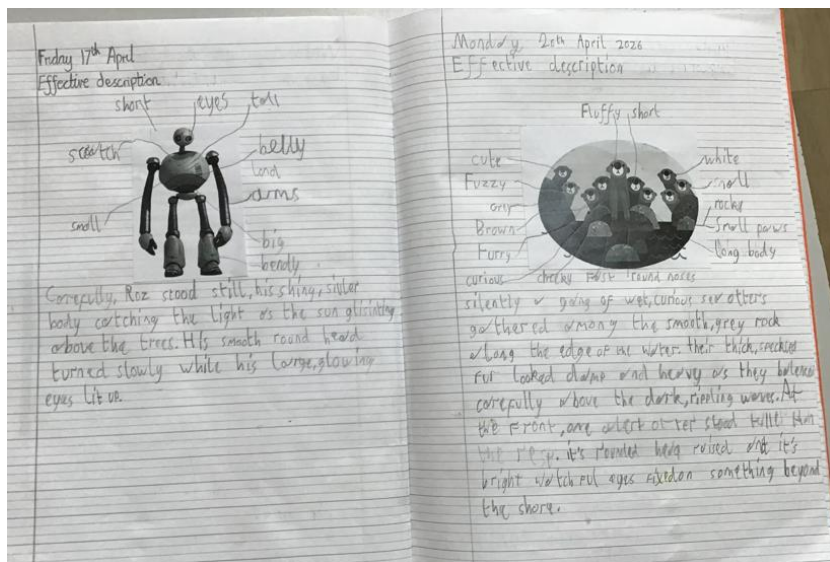 Friday 17th April
Effective description
short eyes tall
scratch
belly
arms
small
big
bendy
Carefully, Roz stood still, his shiny, silver
body catching the light as the sun glistning
above the trees. His smooth round head
turned slowly while his large, glowing
eyes lit up.
Monday, 20th April 2026
Effective description
Fluffy short
cute
white
Fuzzy
small
Grey
rocky
Brown
Small paws
Furry
long body
curious cheeky round noses
silently a gang of wet, curious sea otters
gathered among the smooth, grey rock
along the edge of the water. their thick, speckled
fur looked damp and heavy as they balanced
carefully above the dark, rippling waves. At
the front, one alert otter stood than
the it's rounded head raised and it's
bright watchful eyes fixed on something beyond
the shore.